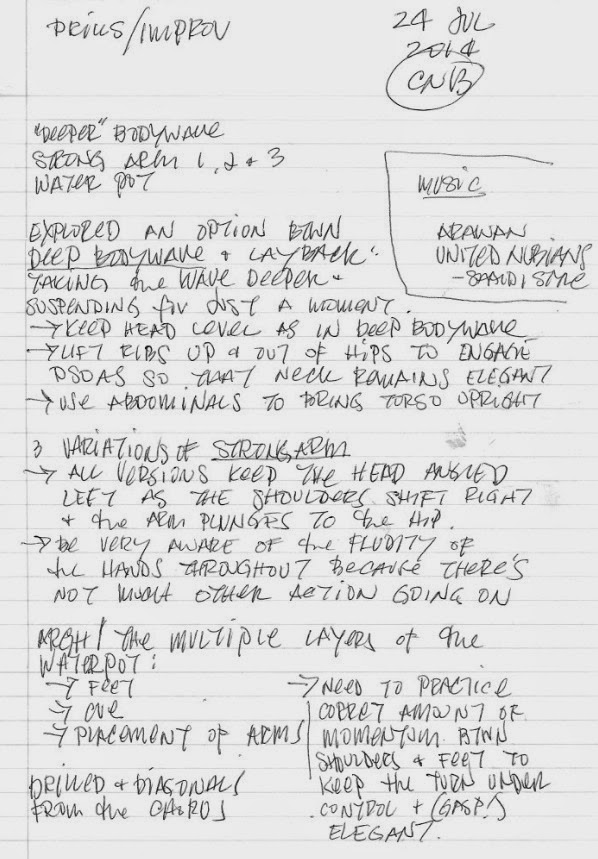 DRILLS/IMPROV
24 JUL
2014
CNB
"DEEPER" BODYWAVE
STRONG ARM 1, 2 + 3
WATER POT
MUSIC
ARAWAN
UNITED NUBIANS
- SAAIDI STYLE
EXPLORED AN OPTION BTWN
DEEP BODYWAVE + LAYBACK:
TAKING the WAVE DEEPER +
SUSPENDING for JUST A MOMENT.
→ KEEP HEAD LEVEL AS IN DEEP BODYWAVE
→ LIFT RIBS UP & OUT OF HIPS TO ENGAGE
PSOAS SO THAT NECK REMAINS ELEGANT
→ USE ABDOMINALS TO BRING TORSO UPRIGHT
3 VARIATIONS OF STRONG ARM
→ ALL VERSIONS KEEP THE HEAD ANGLED
LEFT AS THE SHOULDERS SHIFT RIGHT
+ the ARM PLUNGES TO the HIP.
→ BE VERY AWARE OF the FLUIDITY OF
the HANDS THROUGHOUT BECAUSE THERE'S
NOT MUCH OTHER ACTION GOING ON
ARGH! THE MULTIPLE LAYERS of the
WATERPOT:
→ FEET
→ CUE
→ PLACEMENT OF ARMS
→ NEED TO PRACTICE
CORRECT AMOUNT OF
MOMENTUM BTWN
SHOULDERS & FEET TO
KEEP THE TURN UNDER
CONTROL + (GASP!)
ELEGANT.
DRILLED + DIAGONALS
FROM the